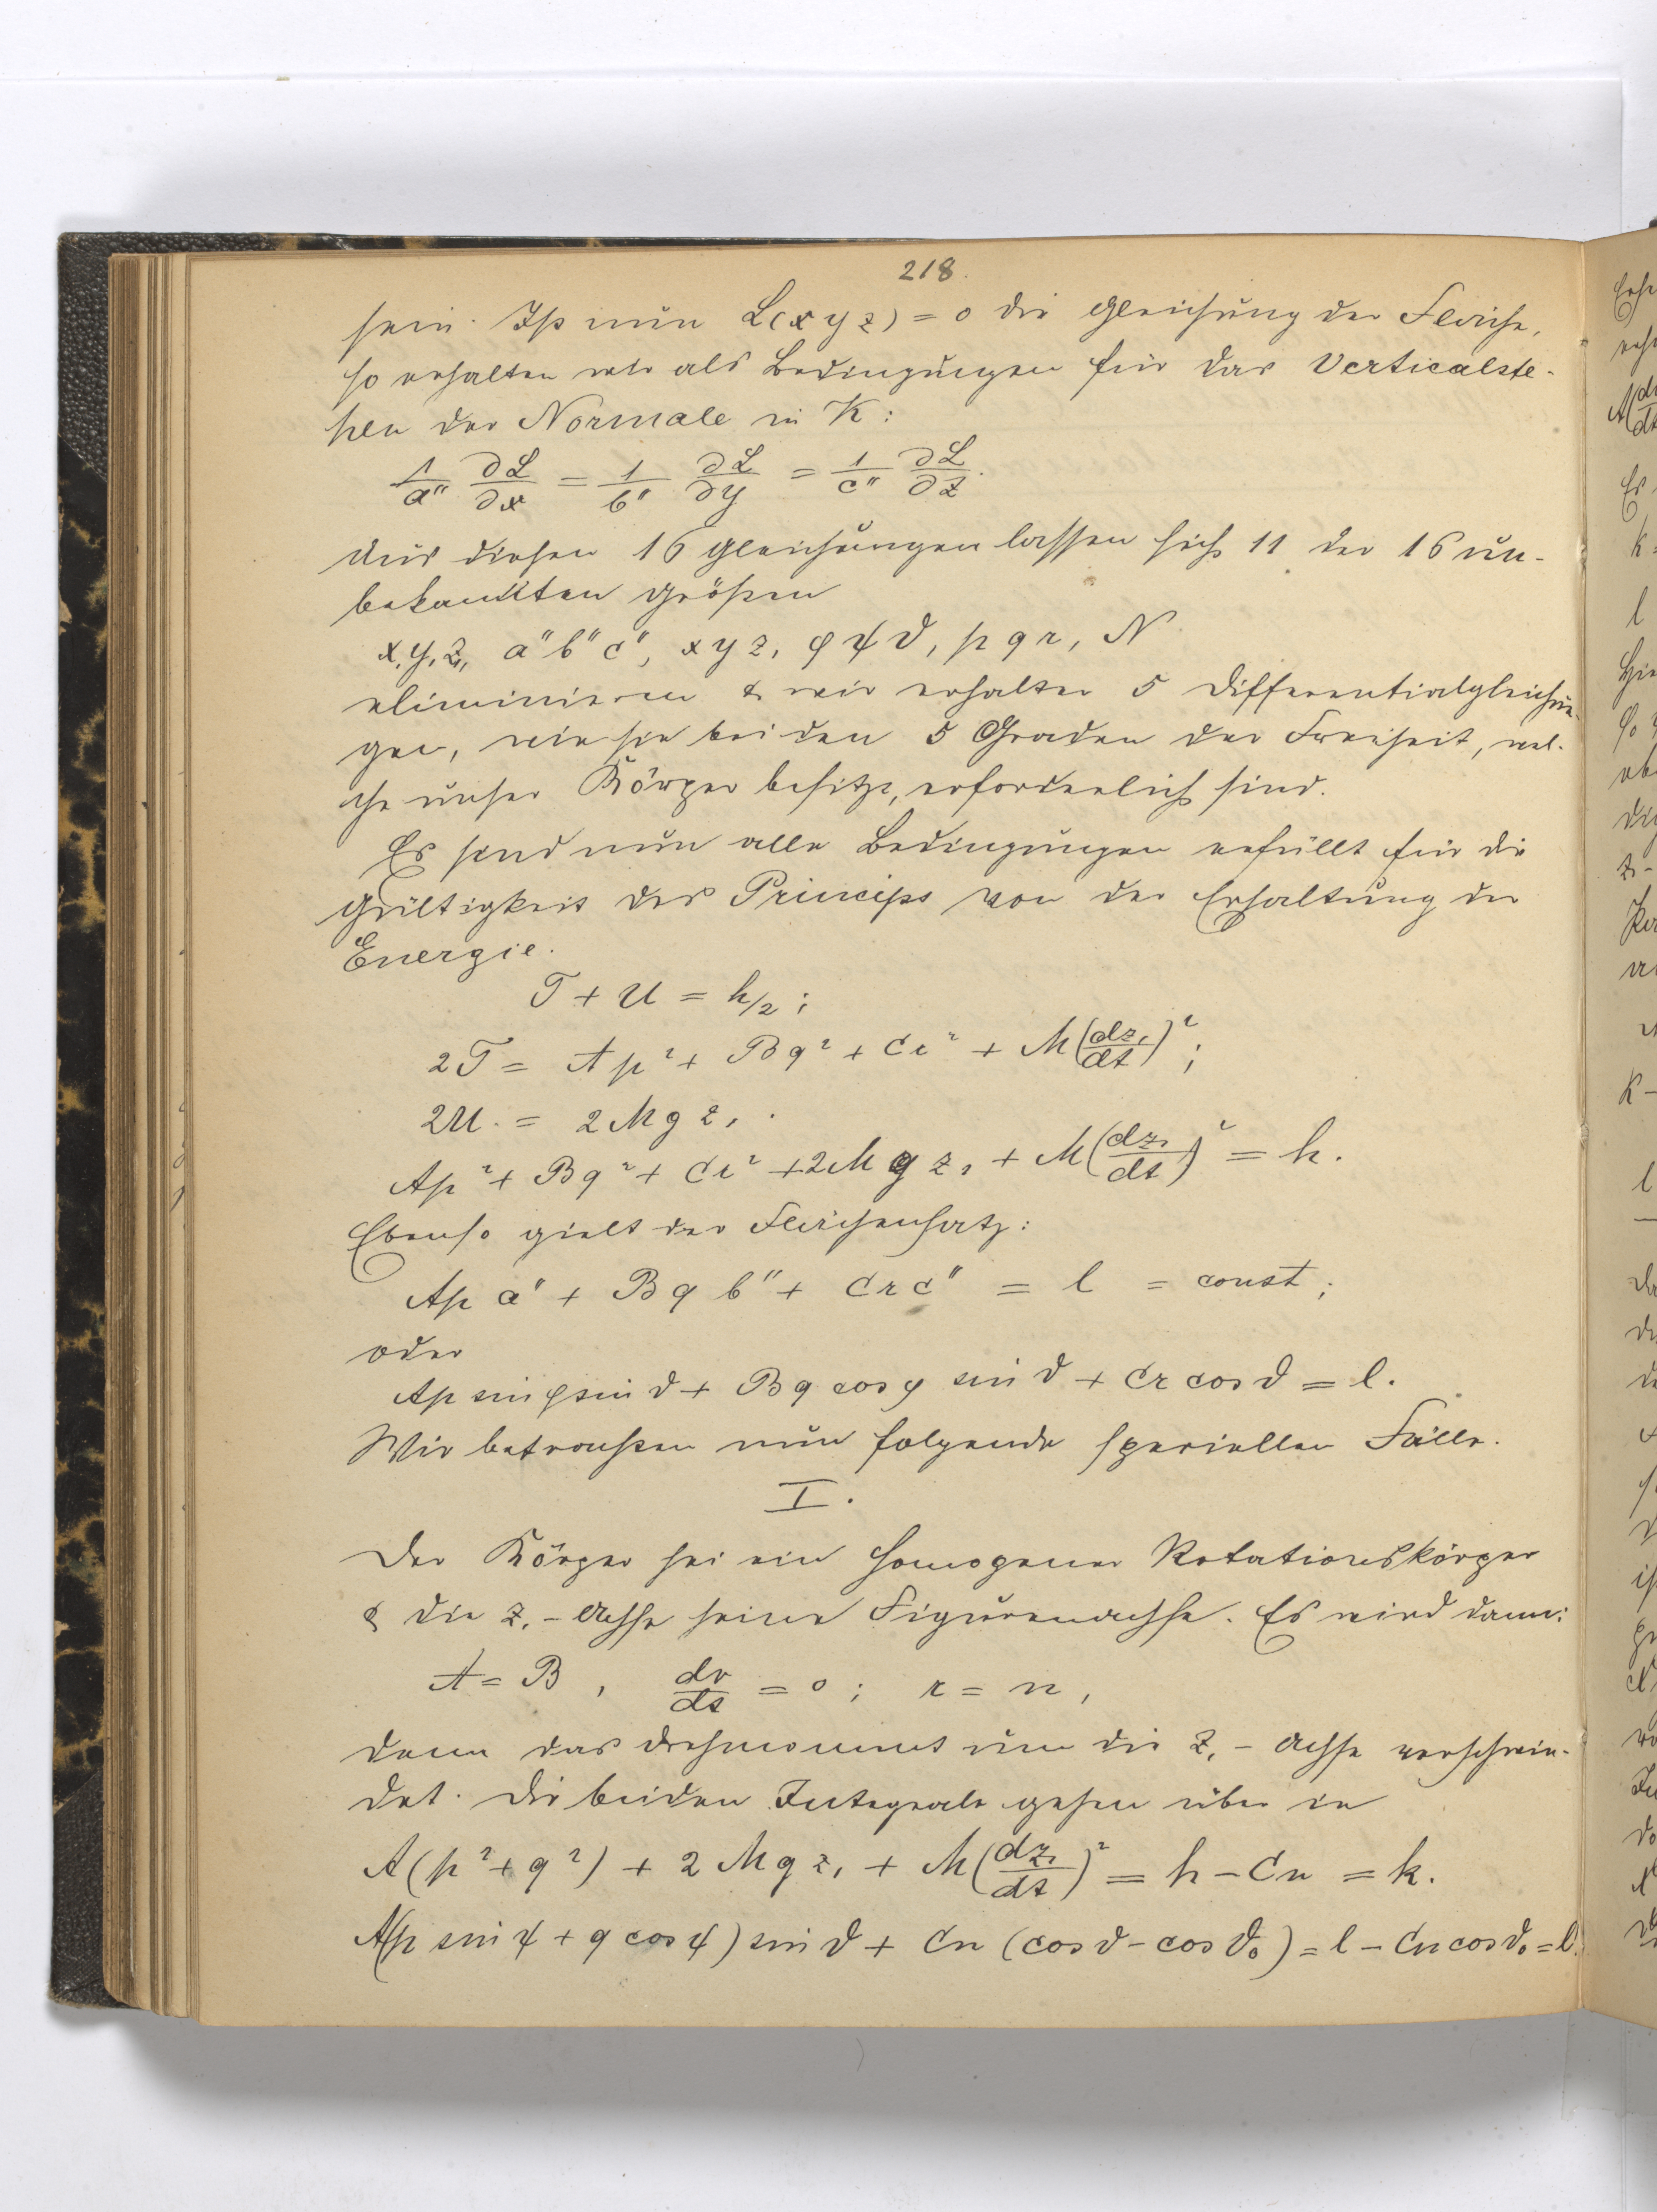 218.
sein. Ist nun L(xyz) = 0 die Gleichung der Fläche,
so erhalten wir als Bedingungen für das Verticalste-
hen der Normale in K:
1/a'' ∂L/∂x = 1/b'' ∂L/∂y = 1/c'' ∂L/∂z.
Aus diesen 16 Gleichungen lassen sich 11 der 16 un-
bekannten Größen
x₁y₁z₁, a''b''c'', xyz, φψϑ, pqr, N
eliminieren & wir erhalten 5 Differentialgleichun-
gen, wie sie bei den 5 Graden der Freiheit, wel-
che unser Körper besitzt, erforderlich sind.
Es sind nun alle Bedingungen erfüllt für die
Gültigkeit des Princips von der Erhaltung der
Energie.
T + U = h/2;
2T = Ap² + Bq² + Cr² + M(dz₁/dt)²;
2U = 2Mgz₁.
Ap² + Bq² + Cr² + 2Mgz₁ + M(dz₁/dt)² = h.
Ebenso gielt der Flächensatz:
Apa'' + Bqb'' + Crc'' = l = const;
oder
Ap sin φ sin ϑ + Bq cos φ sin ϑ + Cr cos ϑ = l.
Wir betrachten nun folgende speciellen Fälle.
I.
Der Körper sei ein homogener Rotationskörper
& die z₁-Achse seine Figurenachse. Es wird dann:
A = B, dr/dt = 0; r = n,
denn das Drehmoment um die z₁-Achse verschwin-
det. Die beiden Integrale gehen über in
A(p² + q²) + 2Mgz₁ + M(dz₁/dt)² = h - Cn = k.
A(p sin ψ + q cos ψ) sin ϑ + Cn (cos ϑ - cos ϑ₀) = l - Cn cos ϑ₀ = l'